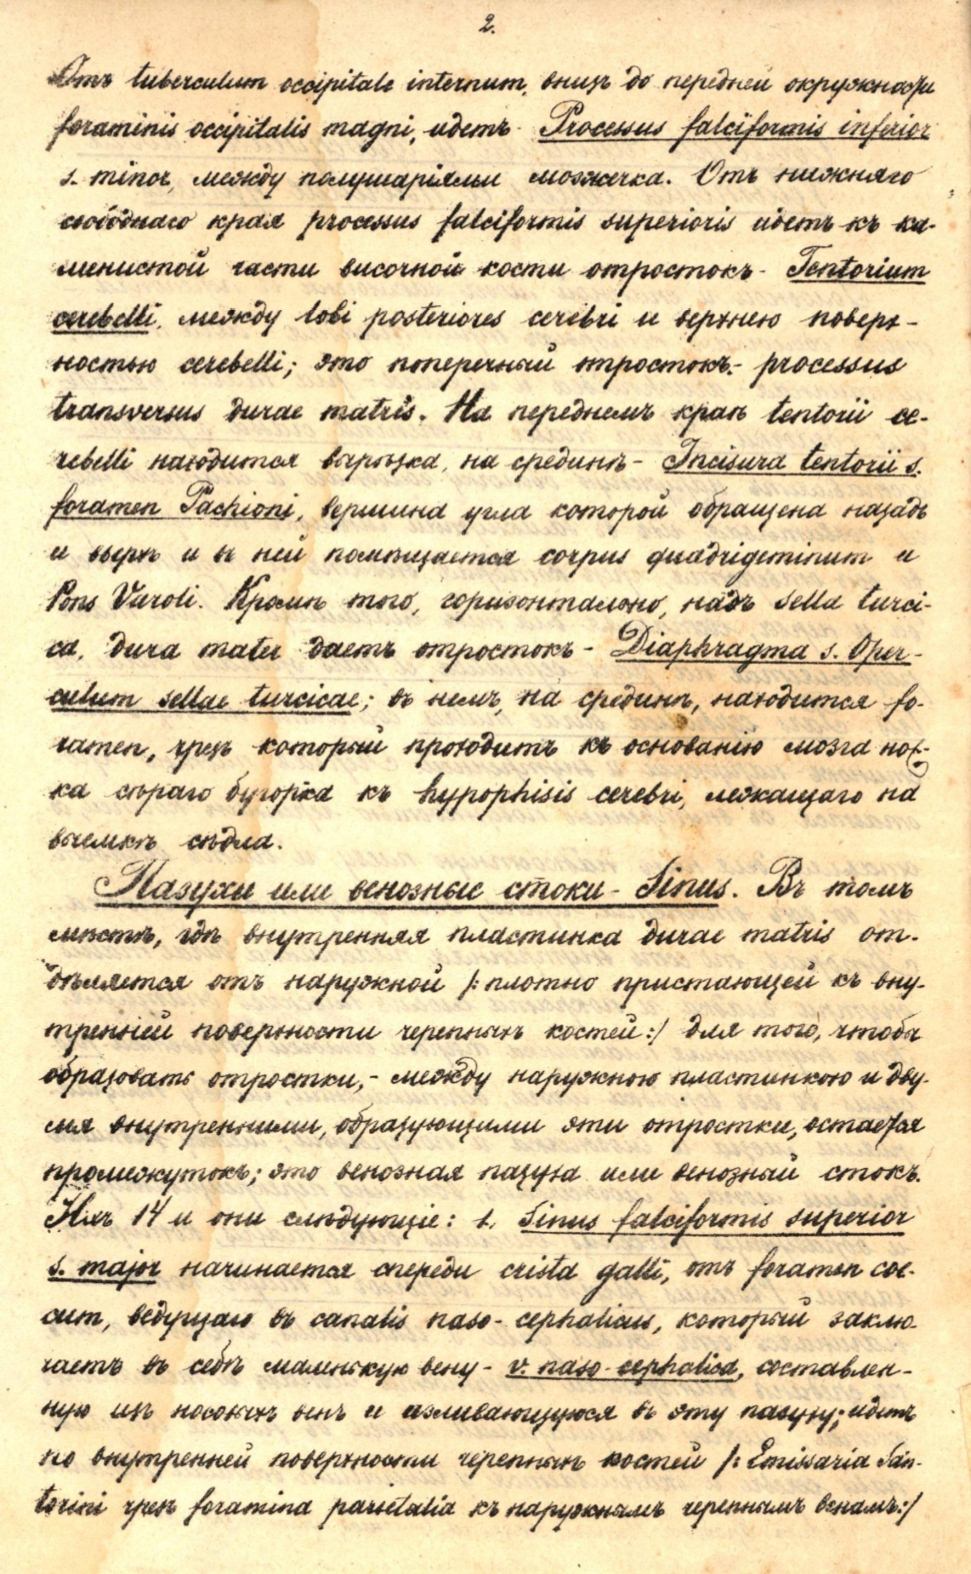 2.
Отъ tuberculum occipitale internum, внизъ до передней окружности
foraminis occipitalis magni, идетъ Processus falciformis inferior
s. minor, между полушаріями мозжечка. Отъ нижняго
свободнаго края processus falciformis superioris идетъ къ ка-
менистой части височной кости отростокъ - Tentorium
cerebelli, между lobi posteriores cerebri и верхнею поверх-
ностью cerebelli; это поперечный отростокъ - processus
transversus durae matris. На переднемъ краѣ tentorii ce-
rebelli находится вырѣзка, на срединѣ - Incisura tentorii s.
foramen Pachioni, вершина угла которой обращена назадъ
и вверхъ и въ ней помѣщается corpus quadrigeminum и
Pons Varoli. Кромѣ того, горизонтально, надъ Sella turci-
ca, dura mater даетъ отростокъ - Diaphragma s. Oper-
culum sellae turcicae; въ немъ, на срединѣ, находится fo-
ramen, чрезъ который проходитъ къ основанію мозга нож-
ка сѣраго бугорка къ hypophisis cerebri, лежащаго на
выемкѣ сѣдла.
Пазухи или венозные стоки - Sinus. Въ томъ
мѣстѣ, гдѣ внутренняя пластинка durae matris от-
дѣляется отъ наружной /: плотно пристающей къ вну-
тренней поверхности черепныхъ костей :/ для того, чтобы
образовать отростки, - между наружною пластинкою и дву-
мя внутренними, образующими эти отростки, остается
промежутокъ; это венозная пазуха или венозный стокъ.
Ихъ 14 и они слѣдующіе: 1. Sinus falciformis superior
s. major начинается спереди crista galli, отъ foramen coe-
cum, ведущаго въ canalis naso-cephalicus, который заклю-
чаетъ въ себѣ маленькую вену - v. naso-cephalica, составлен-
ную изъ носовыхъ венъ и изливающуюся въ эту пазуху; идетъ
по внутренней поверхности черепныхъ костей /: Emissaria San-
torini чрезъ foramina parietalia къ наружнымъ черепнымъ венамъ :/